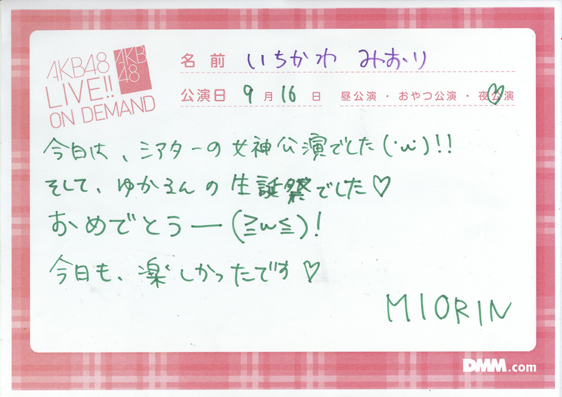 AKB48
LIVE!!
ON DEMAND
AKB
48
名前 いちかわ みおり
公演日 9月16日 昼公演・おやつ公演・夜公演
今日は、シアターの女神公演でした(˙ω˙)!!
そして、ゆかるんの生誕祭でした♡
おめでとうー(≧ω≦)!
今日も、楽しかったです♡
MIORIN
DMM.com